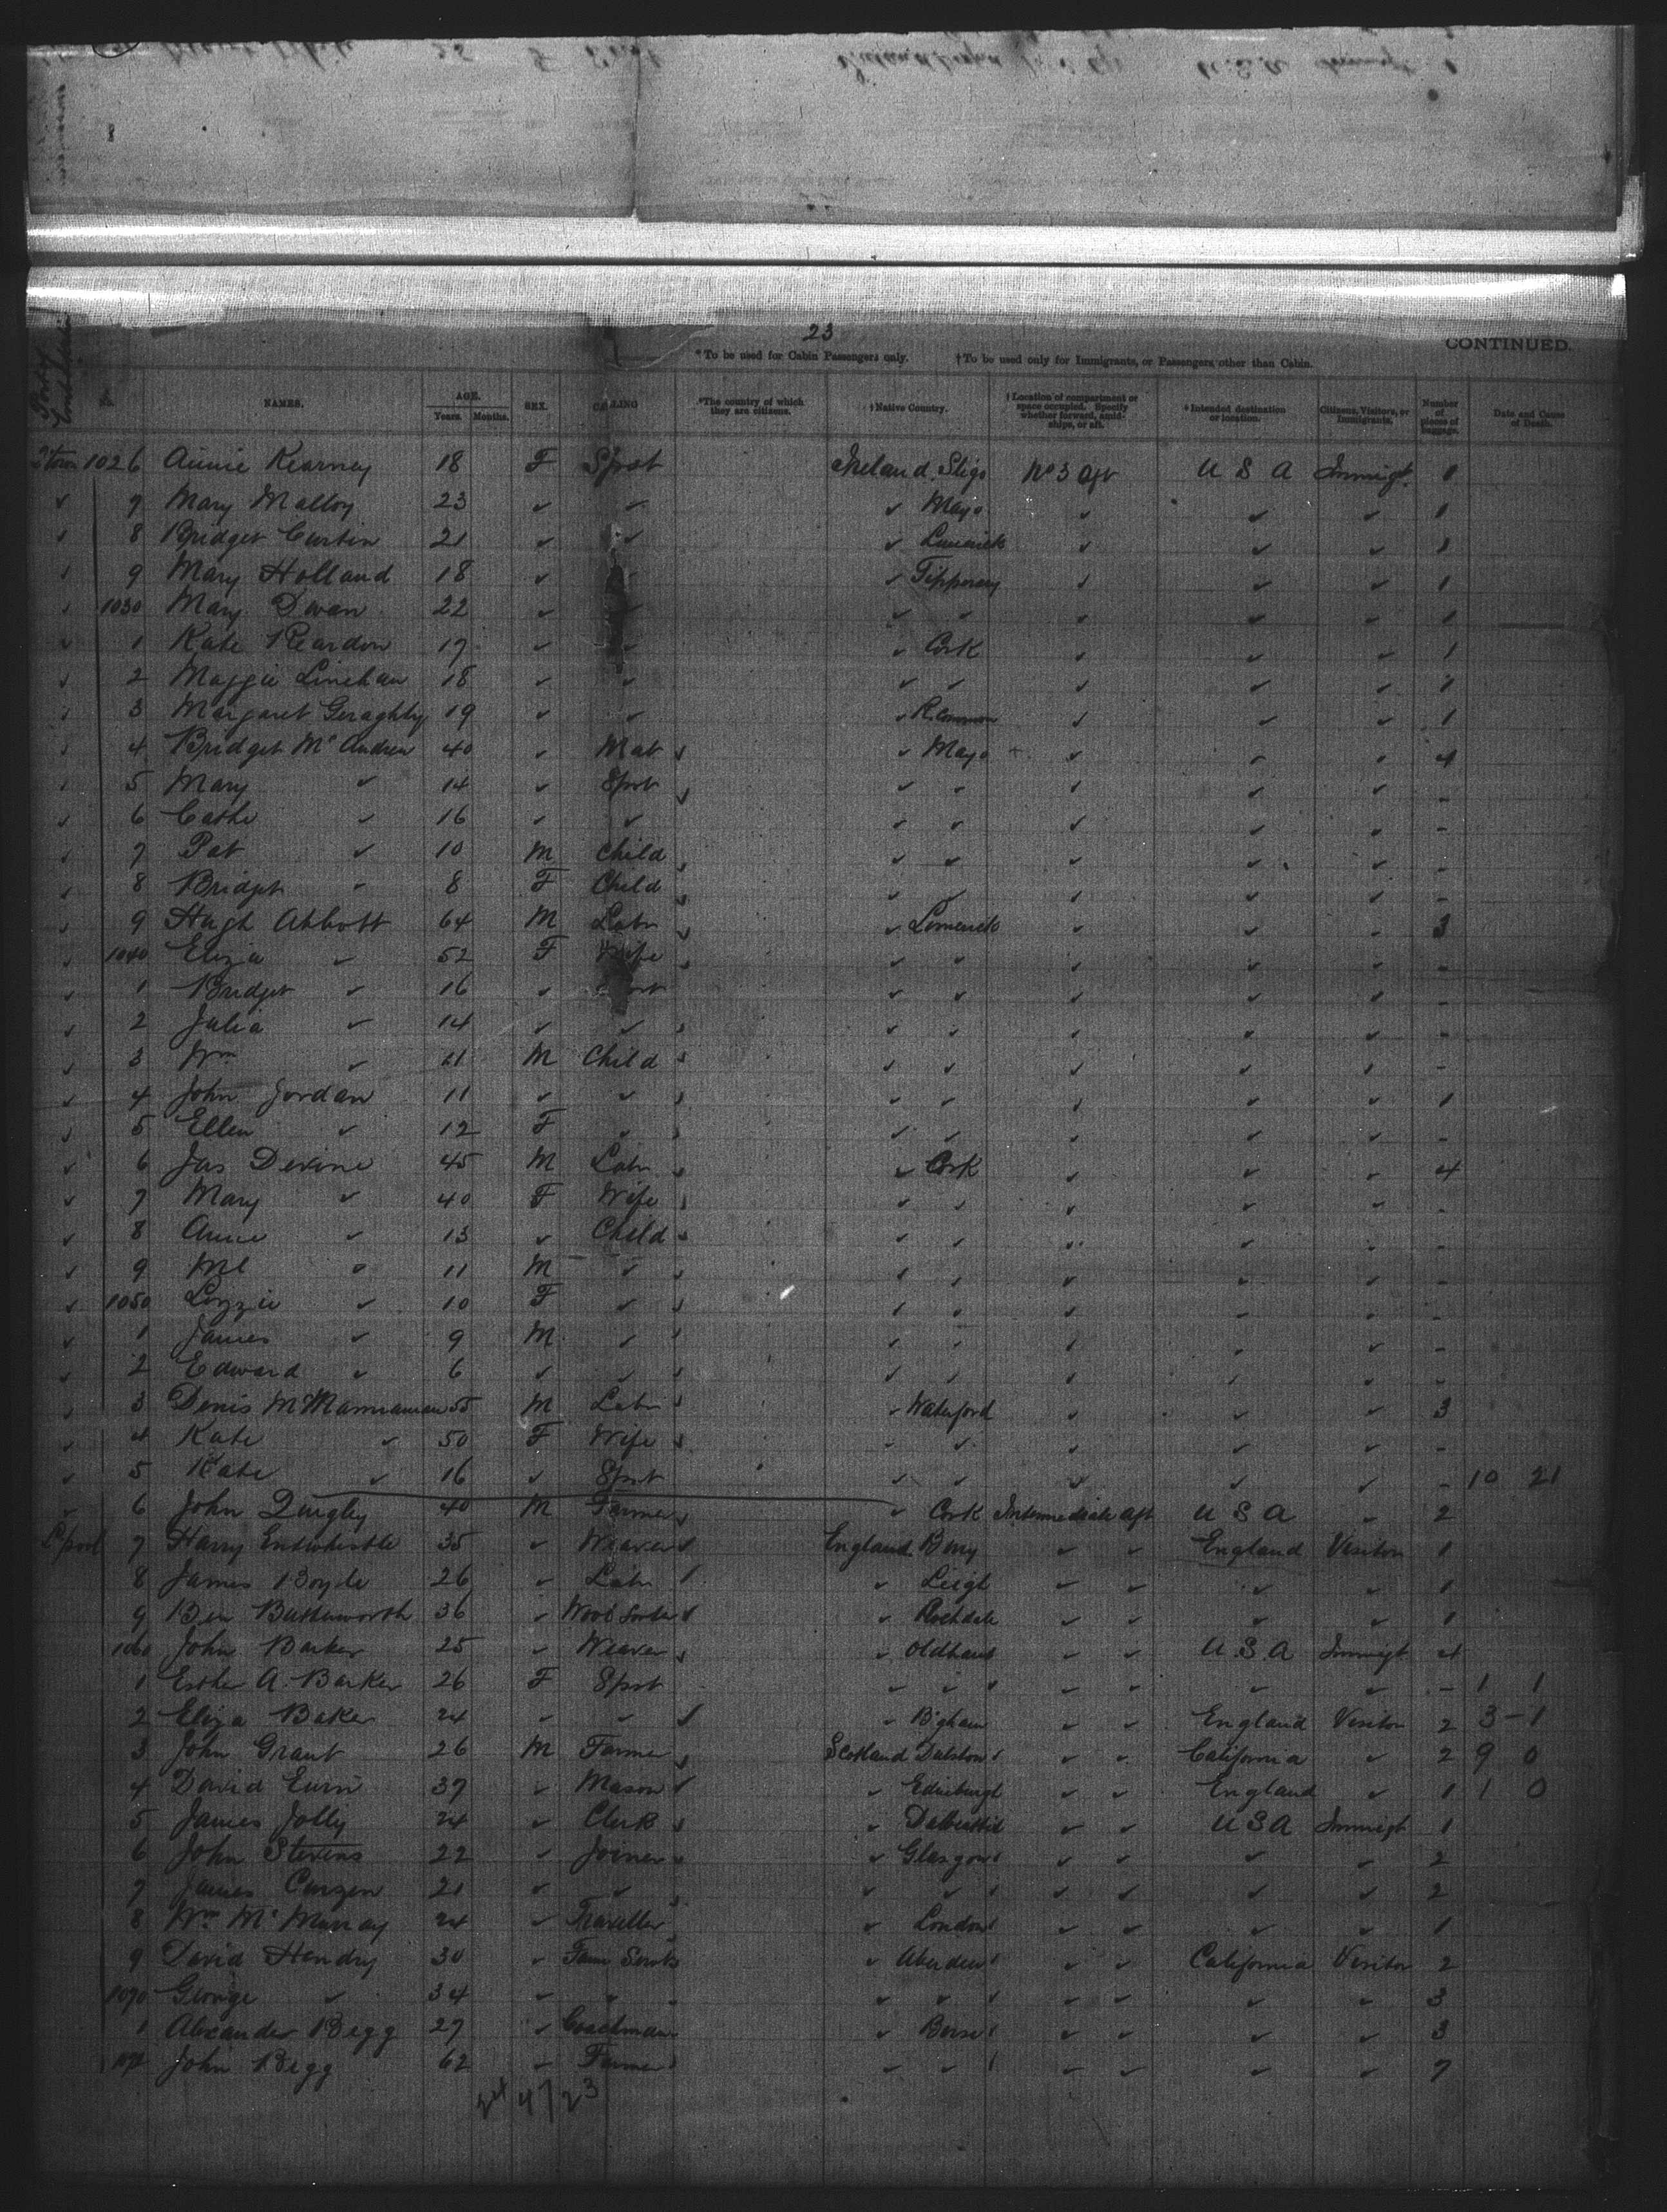 23
CONTINUED.
*To be used for Cabin Passengers only. †To be used only for Immigrants, or Passengers, other than Cabin.
No. NAMES. AGE. Years. Months. SEX. CALLING *The country of which they are citizens. †Native Country. †Location of compartment or space occupied. Specify whether forward, amidships, or aft. *Intended destination or location. Citizens, Visitors, or Immigrants. Number of pieces of baggage. Date and Cause of Death.
Q'town 1026 Annie Kearney 18 F Spst Ireland Sligo No 3 aft U S A Immigt. 1
✓ 7 Mary Malloy 23 ✓ ✓ ✓ Mayo ✓ ✓ ✓ 1
✓ 8 Bridget Curtin 21 ✓ ✓ ✓ Limerick ✓ ✓ ✓ 1
✓ 9 Mary Holland 18 ✓ ✓ Tipperary ✓ ✓ ✓ 1
✓ 1030 Mary Dwan 22 ✓ ✓ ✓ ✓ ✓ ✓ 1
✓ 1 Kate Reardon 17 ✓ ✓ ✓ Cork ✓ ✓ ✓ 1
✓ 2 Maggie Linehan 18 ✓ ✓ ✓ ✓ ✓ ✓ ✓ 1
✓ 3 Margaret Geraghty 19 ✓ ✓ ✓ R.Common ✓ ✓ ✓ 1
✓ 4 Bridget McAndrew 40 ✓ Mat ✓ Mayo ✓ ✓ ✓ 4
✓ 5 Mary ✓ 14 ✓ Spst ✓ ✓ ✓ ✓ ✓ -
✓ 6 Cathe ✓ 16 ✓ ✓ ✓ ✓ ✓ ✓ ✓ -
✓ 7 Pat ✓ 10 M Child ✓ ✓ ✓ ✓ ✓ -
✓ 8 Bridget ✓ 8 F Child ✓ ✓ ✓ ✓ ✓ -
✓ 9 Hugh Abbott 64 M Labr ✓ Limerick ✓ ✓ ✓ 3
✓ 1040 Eliza ✓ 52 F Wife ✓ ✓ ✓ ✓ ✓ -
✓ 1 Bridget ✓ 16 ✓ ✓ ✓ ✓ ✓ ✓ -
✓ 2 Julia ✓ 14 ✓ ✓ ✓ ✓ ✓ ✓ ✓ -
✓ 3 Wm ✓ 11 M Child ✓ ✓ ✓ ✓ ✓ -
✓ 4 John Jordan 11 ✓ ✓ ✓ ✓ ✓ ✓ ✓ 1
✓ 5 Ellen ✓ 12 F ✓ ✓ ✓ ✓ ✓ ✓ -
✓ 6 Jas Devine 45 M Labr ✓ Cork ✓ ✓ ✓ 4
✓ 7 Mary ✓ 40 F Wife ✓ ✓ ✓ ✓ ✓ -
✓ 8 Annie ✓ 13 ✓ Child ✓ ✓ ✓ ✓ ✓ -
✓ 9 Ml ✓ 11 M ✓ ✓ ✓ ✓ ✓ ✓ -
✓ 1050 Lizzie ✓ 10 F ✓ ✓ ✓ ✓ ✓ ✓ -
✓ 1 James ✓ 9 M ✓ ✓ ✓ ✓ ✓ ✓ -
✓ 2 Edward ✓ 6 ✓ ✓ ✓ ✓ ✓ ✓ ✓ -
✓ 3 Denis 55 M Labr ✓ Waterford ✓ ✓ ✓ 3
✓ 4 Kate ✓ 50 F Wife ✓ ✓ ✓ ✓ ✓ -
✓ 5 Kate ✓ 16 ✓ Spst ✓ ✓ ✓ ✓ ✓ - 10 21
✓ 6 John Quigley 40 M Farmer ✓ Cork Intermediate aft U S A ✓ 2
L'pool 7 Harry Entwhistle 35 ✓ Weaver England Bury ✓ ✓ England Visitor 1
8 James Boyle 26 ✓ Labr ✓ Leigh ✓ ✓ ✓ ✓ 1
9 Ben Butterworth 36 ✓ Wool Sorter ✓ Rochdale ✓ ✓ ✓ ✓ 1
1060 John Barker 25 ✓ Weaver ✓ Oldham ✓ ✓ U.S.A Immigt 4
1 Esther A. Barker 26 F Spst ✓ ✓ ✓ ✓ ✓ ✓ - 1 1
2 Eliza Baker 24 ✓ ✓ ✓ B'gham ✓ ✓ England Visitor 2 3-1
3 John Grant 26 M Farmer Scotland ✓ ✓ California ✓ 2 9 0
4 David 37 ✓ Mason ✓ Edinburgh ✓ ✓ England ✓ 1 1 0
5 James Jolly 24 ✓ Clerk ✓ Dalbeattie ✓ ✓ U S A Immigt 1
6 John Stevens 22 ✓ Joiner ✓ Glasgow ✓ ✓ ✓ ✓ 2
7 James Curzen 21 ✓ ✓ ✓ ✓ ✓ ✓ ✓ ✓ 2
8 Wm McMurray 24 ✓ Traveller ✓ London ✓ ✓ ✓ ✓ 1
9 David Hendry 30 ✓ Farm ✓ Aberdeen ✓ ✓ California Visitor 2
1070 George ✓ 34 ✓ ✓ ✓ ✓ ✓ ✓ ✓ ✓ 3
1 Alexander Begg 27 ✓ Coachman ✓ ✓ ✓ ✓ ✓ 3
1072 John Begg 62 ✓ Farmer ✓ ✓ ✓ ✓ ✓ ✓ 7
24 4/23